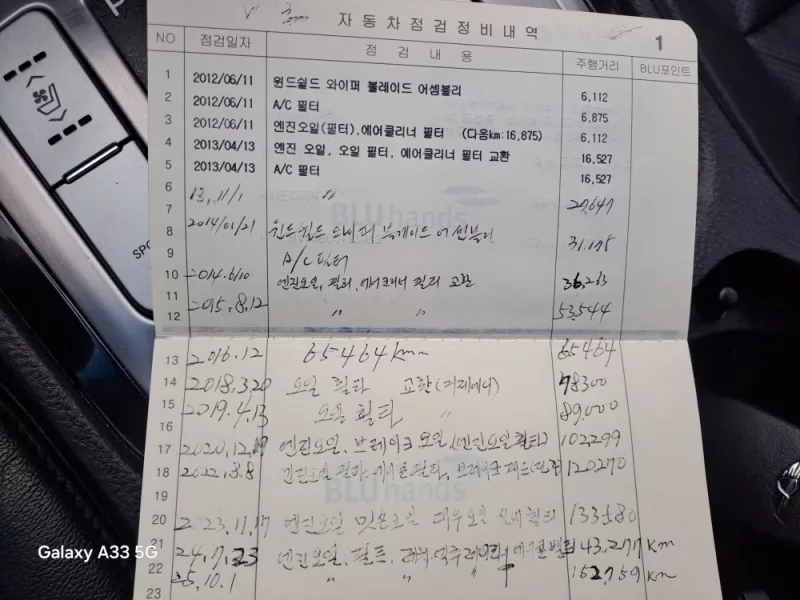 자동차점검정비내역
1
NO 점검일자 점검내용 주행거리 BLU포인트
1 2012/06/11 윈드쉴드 와이퍼 블레이드 어셈블리 6,112
2 2012/06/11 A/C 필터 6,875
3 2012/06/11 엔진오일(필터),에어클리너 필터 (다음km:16,875) 6,112
4 2013/04/13 엔진 오일, 오일 필터, 에어클리너 필터 교환 16,527
5 2013/04/13 A/C 필터 16,527
6 13, 11/1 〃
7 27,647
8 2014/01/21 윈드쉴드 와이퍼 블레이드 어셈블리 31,175
9 A/C 필터
10 2014.6/10 엔진오일, 필터, 에어크리너 필터 교환 36,263
11 2015.8.12 〃 〃 53,544
12
13 2016.12 65464km 65464
14 2018.3.20 오일 필타 교환 78300
15 2019.4.13 오일 필터 〃 89,000
16
17 2020.12. 엔진오일, 브레이크 오일, (엔진오일필타) 102,299
18 엔진오일 필타, 브레이크 120,270
20 2023.11.17 엔진오일 133580
21 24.7.23 엔진오일, 43,277 km
22 25.10.1 〃 〃 152,759 km
23
BLUhands
BLUhands
SPO
Galaxy A33 5G